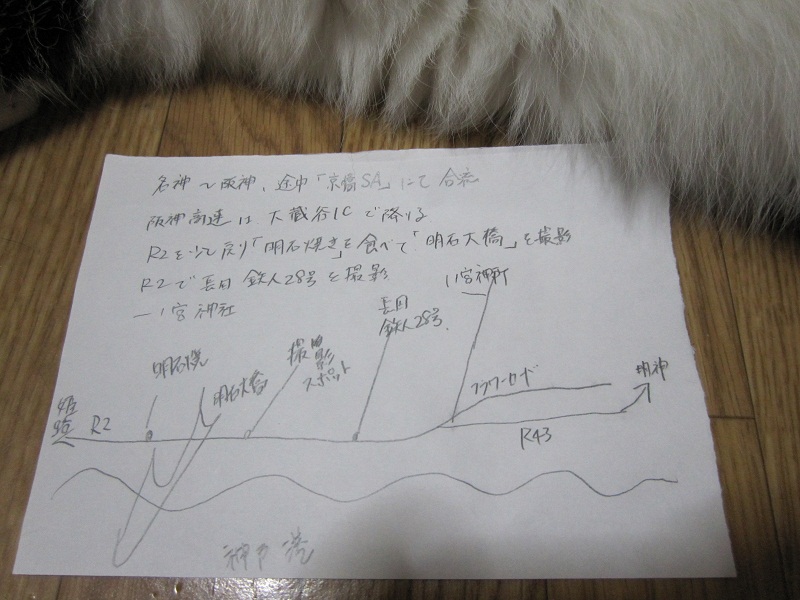 名神〜阪神、途中「京橋SA」にて合流
阪神高速は、大蔵谷ICで降りる
R2を少し戻り「明石焼き」を食べて「明石大橋」を撮影
R2で長田 鉄人28号を撮影
一宮神社
明石焼
明石大橋
撮影
スポット
長田
鉄人28号
一宮神社
フラワーロード
名神
姫路
R2
R43
神戸港